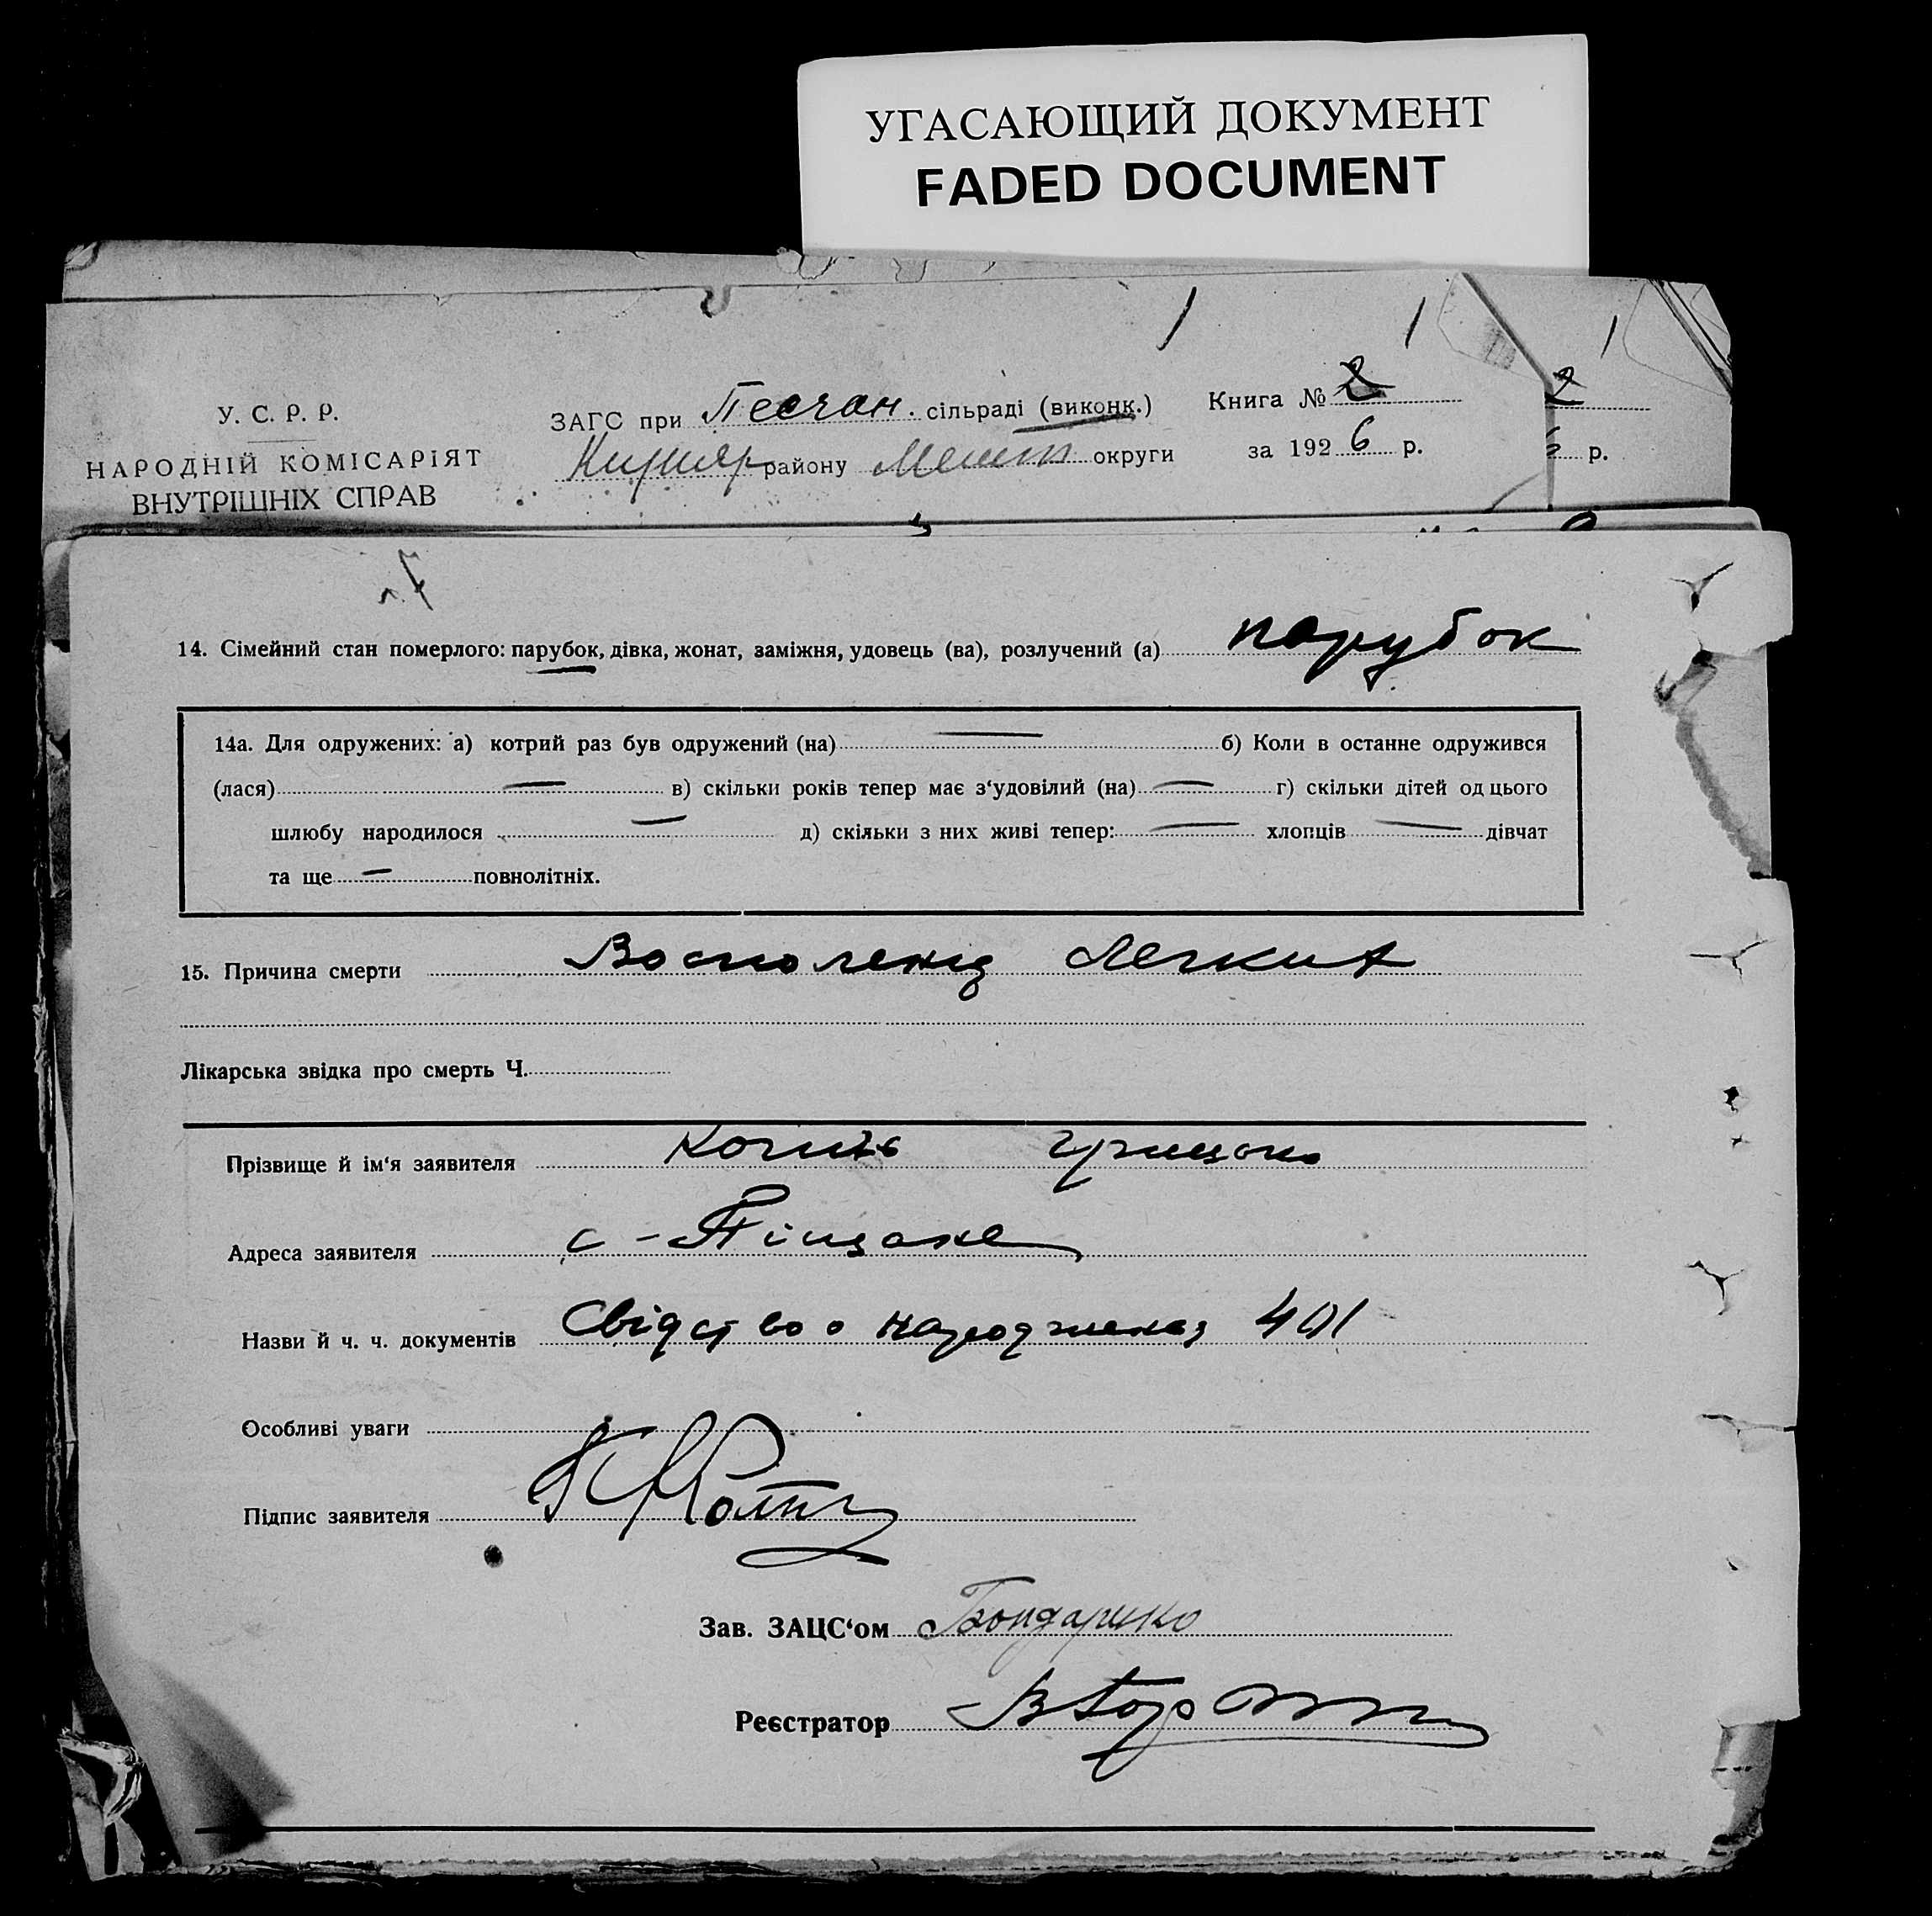 УГАСАЮЩИЙ ДОКУМЕНТ
FADED DOCUMENT
У. С. Р. Р.
НАРОДНІЙ КОМІСАРІЯТ
ВНУТРІШНІХ СПРАВ
ЗАГС при Песчан. сільраді (виконк.)
району Меліт округи
Книга № 2
за 1926 р.
2
р.
14. Сімейний стан померлого: парубок, дівка, жонат, заміжня, удовець (ва), розлучений (а) парубок
14а. Для одружених: а) котрий раз був одружений (на) — б) Коли в останне одружився
(лася) — в) скільки років тепер має з‘удовілий (на) — г) скільки дітей од цього
шлюбу народилося — д) скільки з них живі тепер: — хлопців — дівчат
та ще — повнолітніх.
15. Причина смерти Восполенія Легких
Лікарська звідка про смерть Ч.
Прізвище й ім‘я заявителя Грицько
Адреса заявителя с - Піщане
Назви й ч. ч. документів Свідство о народженія 401
Особливі уваги
Підпис заявителя
Зав. ЗАЦС‘ом Бондаренко
Реєстратор